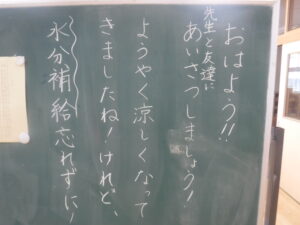 おはよう!!
先生と友達に
あいさつしましょう!
ようやく涼しくなって
きましたね!けれど、
水分補給忘れずに!